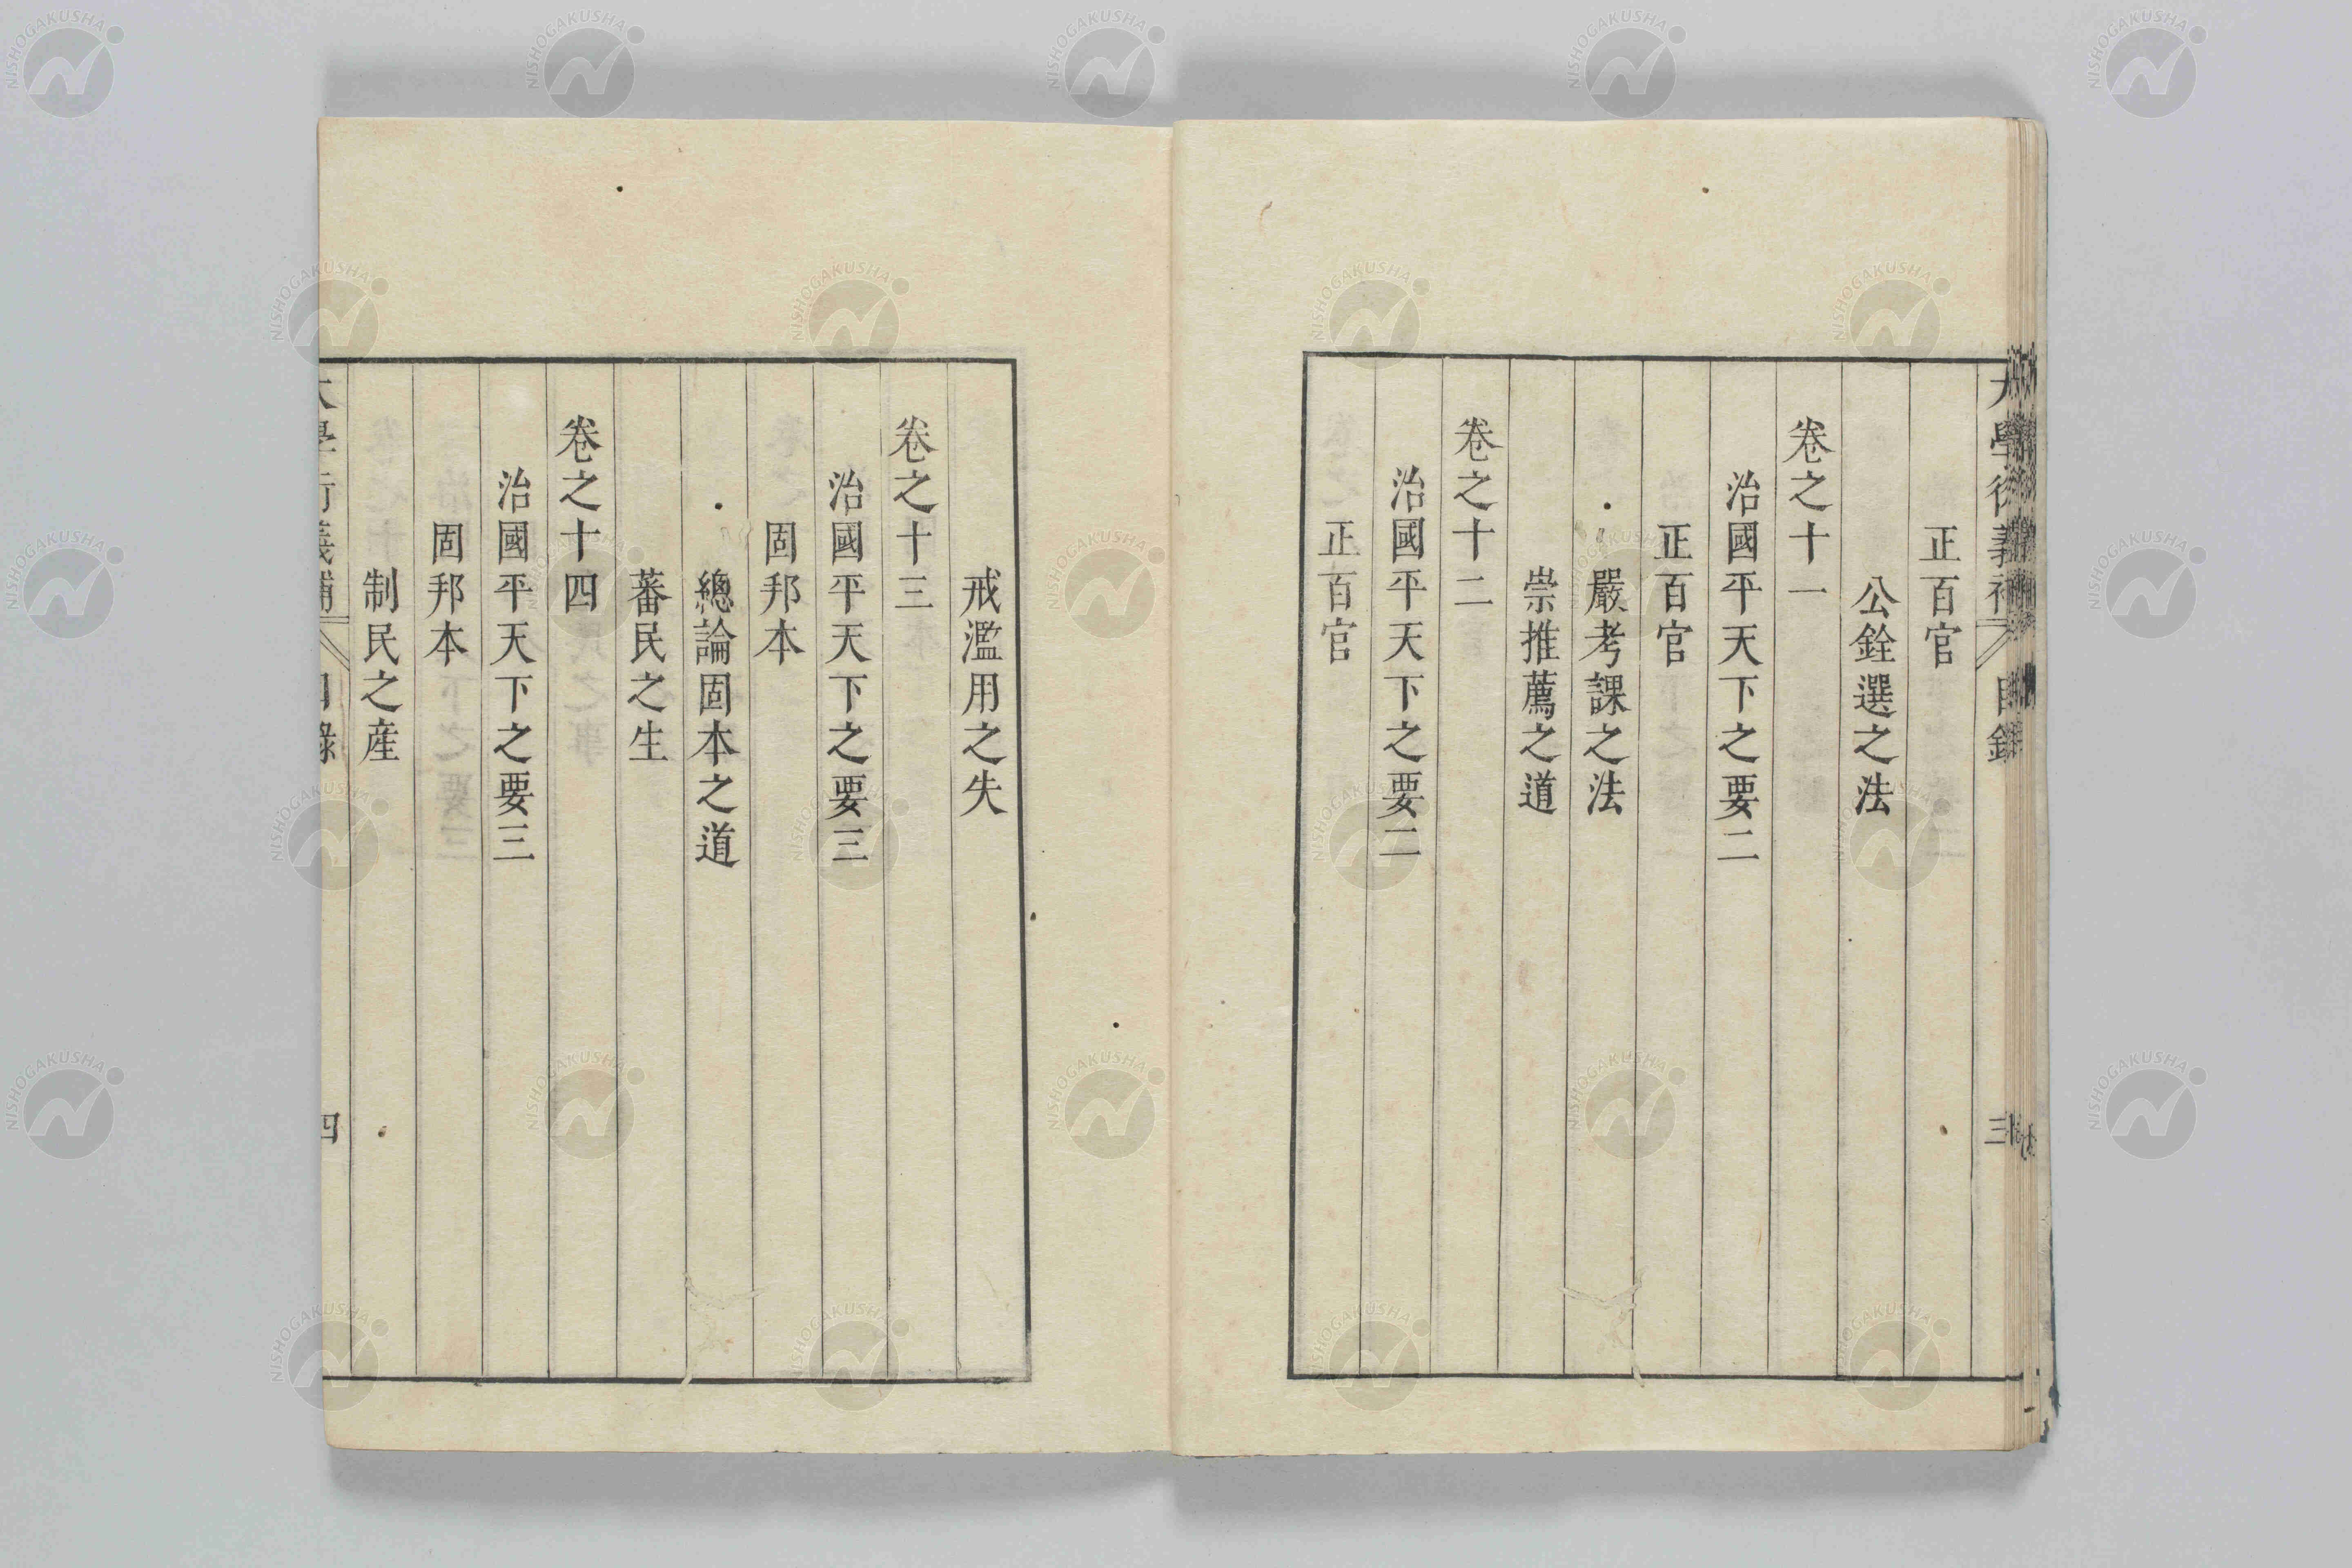 正百官
公銓選之法
卷之十一
治國平天下之要二
正百官
嚴考課之法
崇推薦之道
卷之十二
治國平天下之要二
正百官
戒濫用之失
卷之十三
治國平天下之要三
固邦本
總論固本之道
蕃民之生
卷之十四
治國平天下之要三
固邦本
制民之産
四
NISHOGAKUSHA